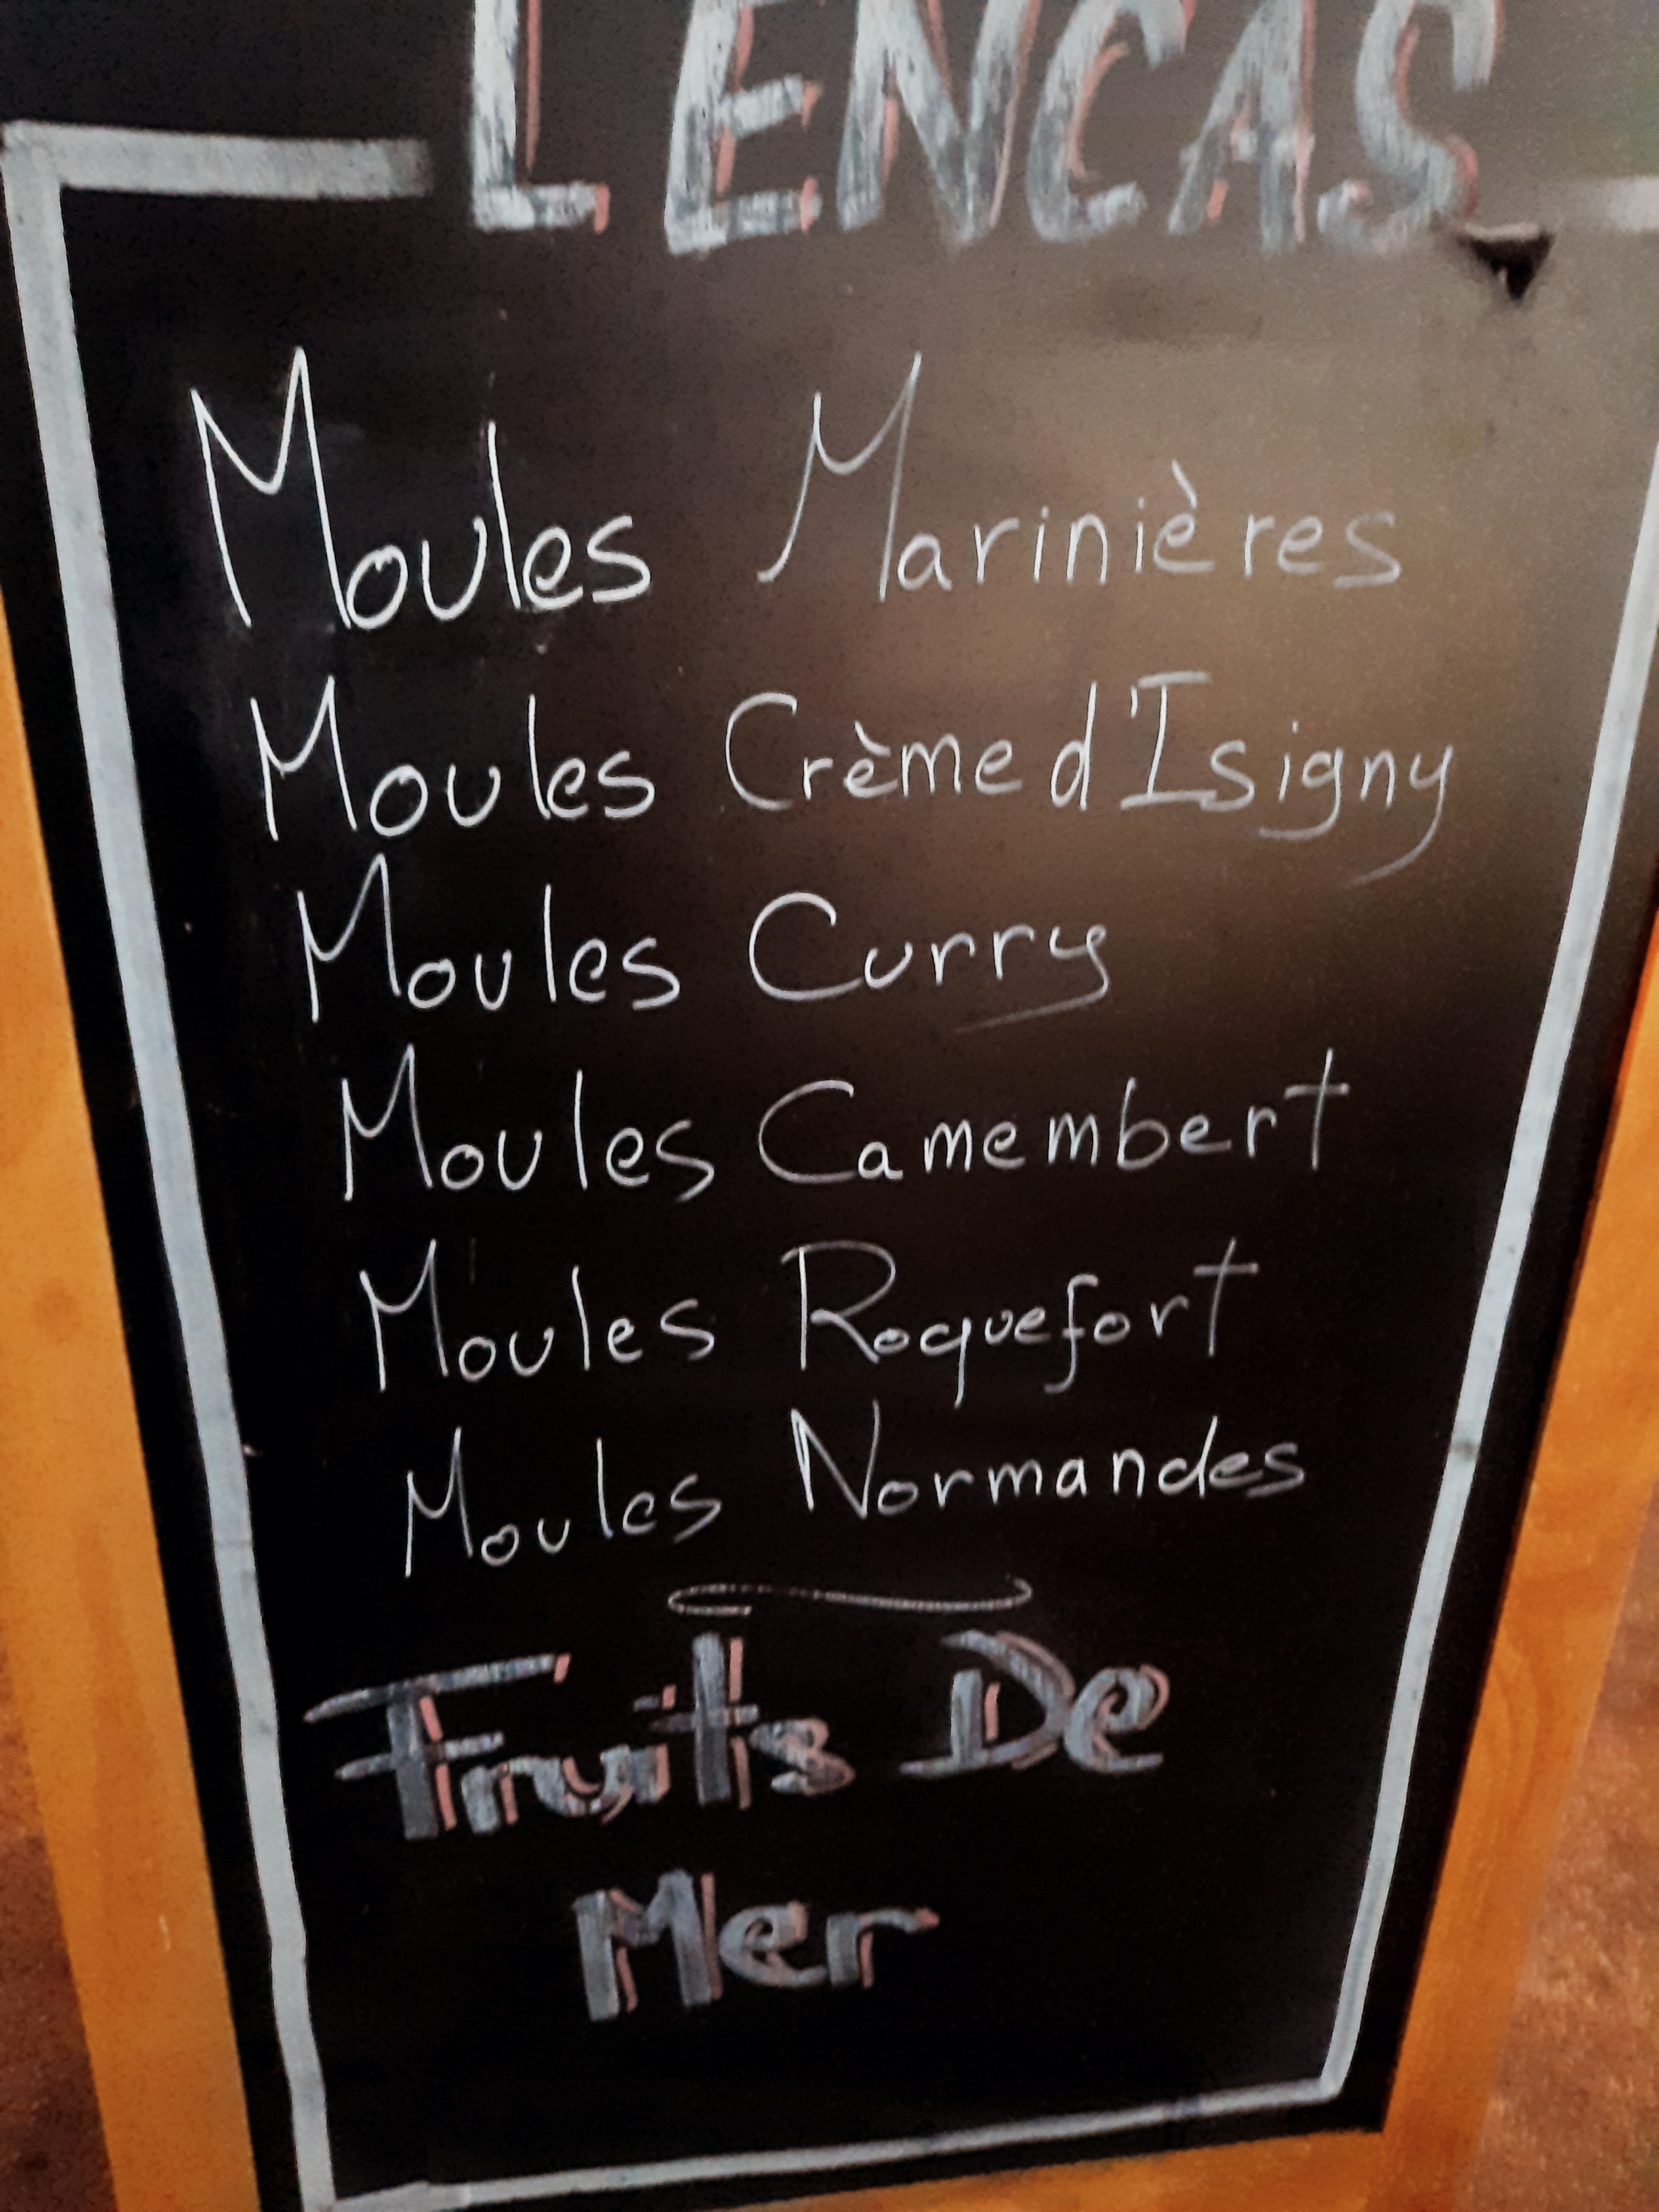 L'ENCAS
Moules Marinières
Moules Crème d'Isigny
Moules Curry
Moules Camembert
Moules Roquefort
Moules Normandes
Fruits De
Mer